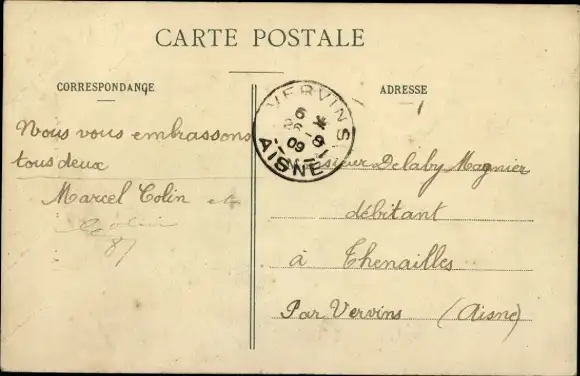 CARTE POSTALE
CORRESPONDANCE
Nous vous embrassons
tous deux
Marcel Colin et
Colin
87
ADRESSE
VERVINS
6 *
26 - 9
09
AISNE
Monsieur Delaby Magnier
débitant
à Thenailles
Par Vervins (Aisne)